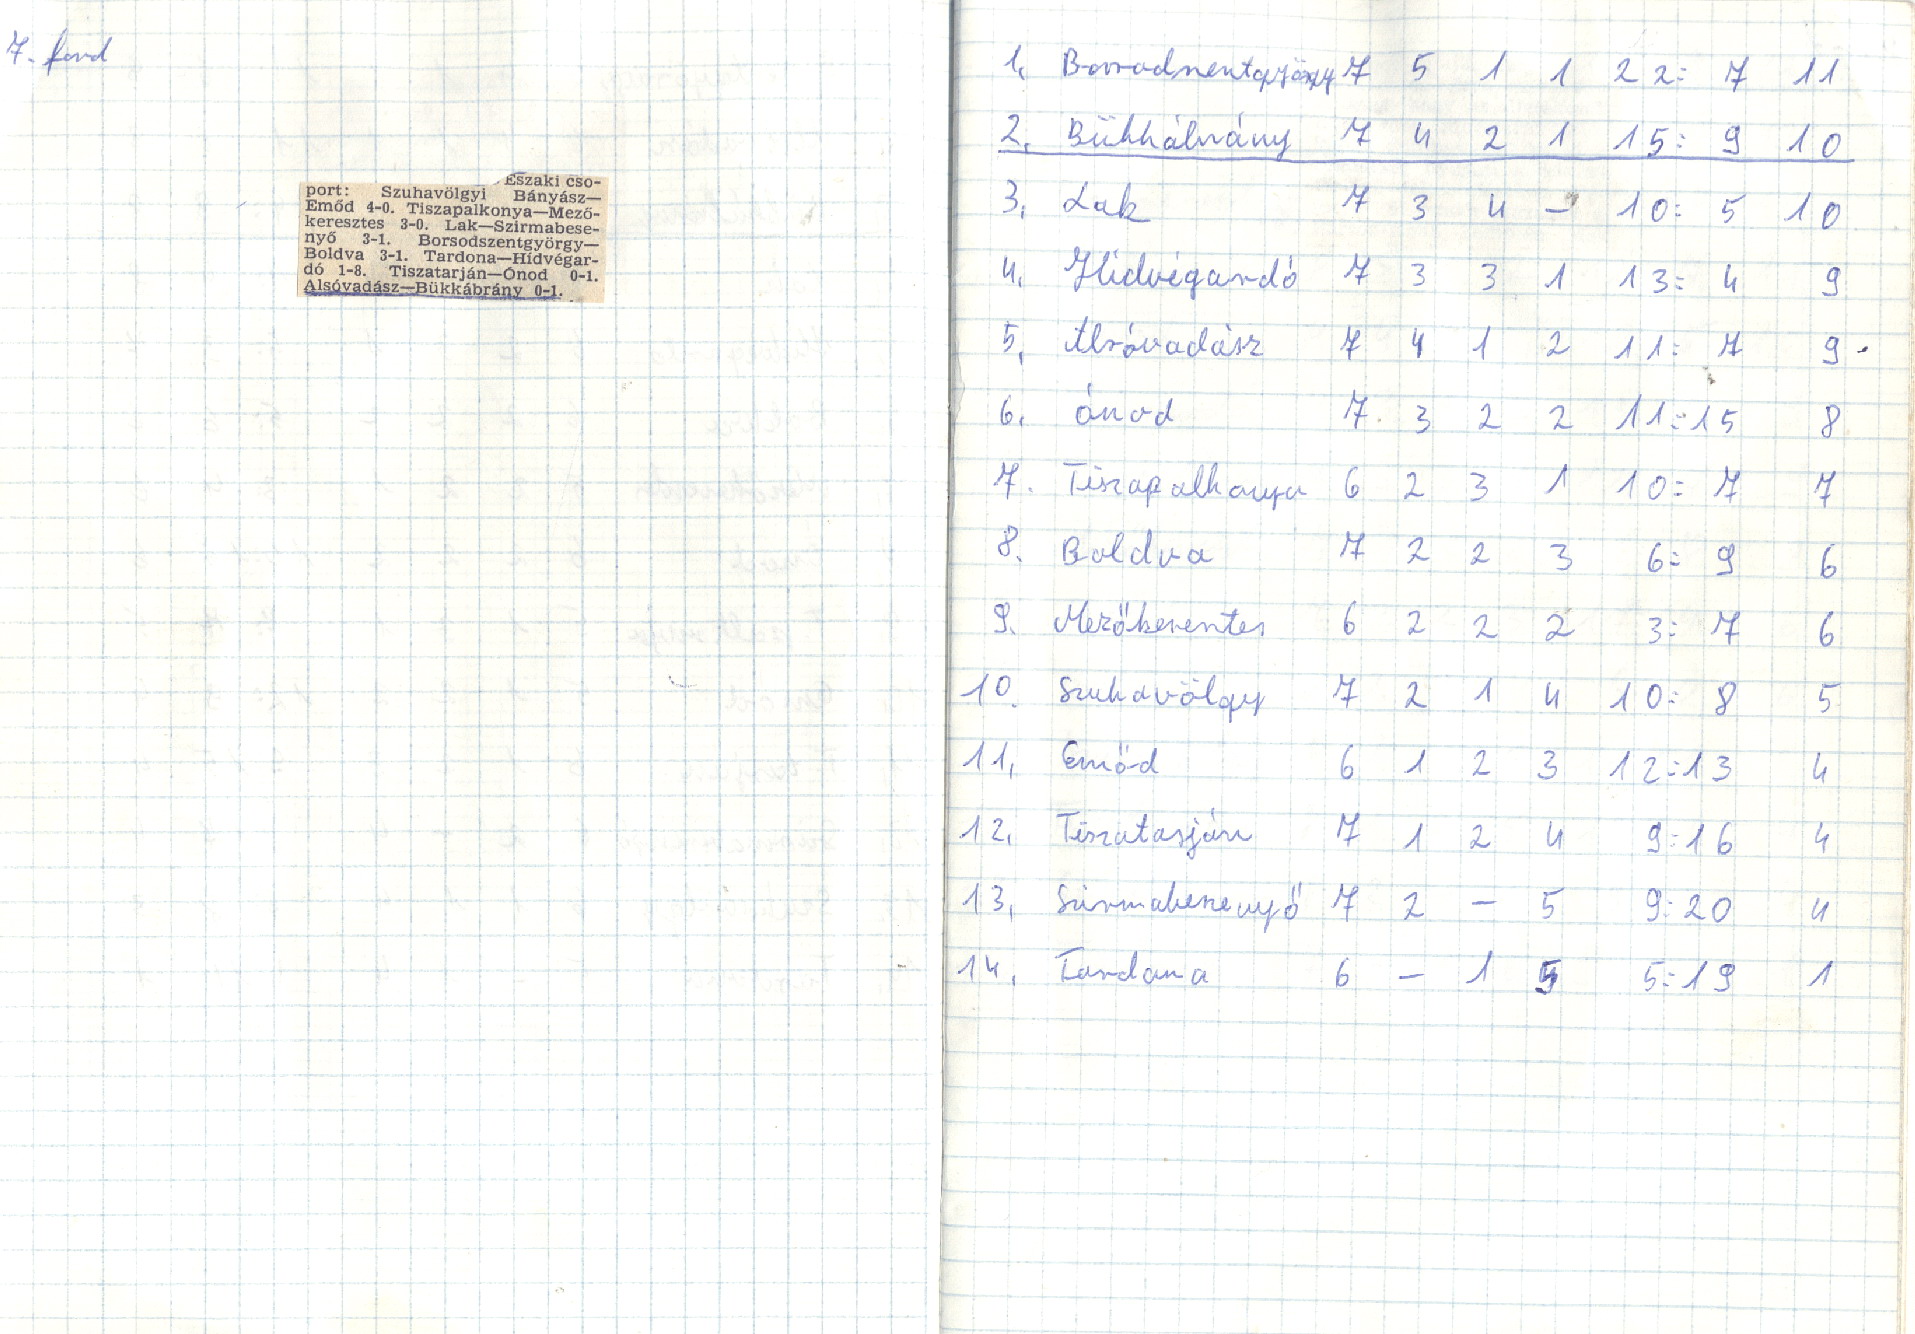 7. ford
Északi cso-
port: Szuhavölgyi Bányász—
Emőd 4-0. Tiszapalkonya—Mező-
keresztes 3-0. Lak—Szirmabese-
nyő 3-1. Borsodszentgyörgy—
Boldva 3-1. Tardona—Hídvégar-
dó 1-8. Tiszatarján—Ónod 0-1.
Alsóvadász—Bükkábrány 0-1.
1. Borsodszentgyörgy 7 5 1 1 22: 7 11
2. Bükkábrány 7 4 2 1 15: 9 10
3. Lak 7 3 4 – 10: 5 10
4. Hidvégardó 7 3 3 1 13: 4 9
5. Alsóvadász 7 4 1 2 11: 7 9
6. Ónod 7 3 2 2 11:15 8
7. Tiszapalkonya 6 2 3 1 10: 7 7
8. Boldva 7 2 2 3 6: 9 6
9. Mezőkeresztes 6 2 2 2 3: 7 6
10. Szuhavölgy 7 2 1 4 10: 8 5
11. Emőd 6 1 2 3 12:13 4
12. Tiszatarján 7 1 2 4 9:16 4
13. Szirmabesenyő 7 2 – 5 9:20 4
14. Tardona 6 – 1 5 5:19 1